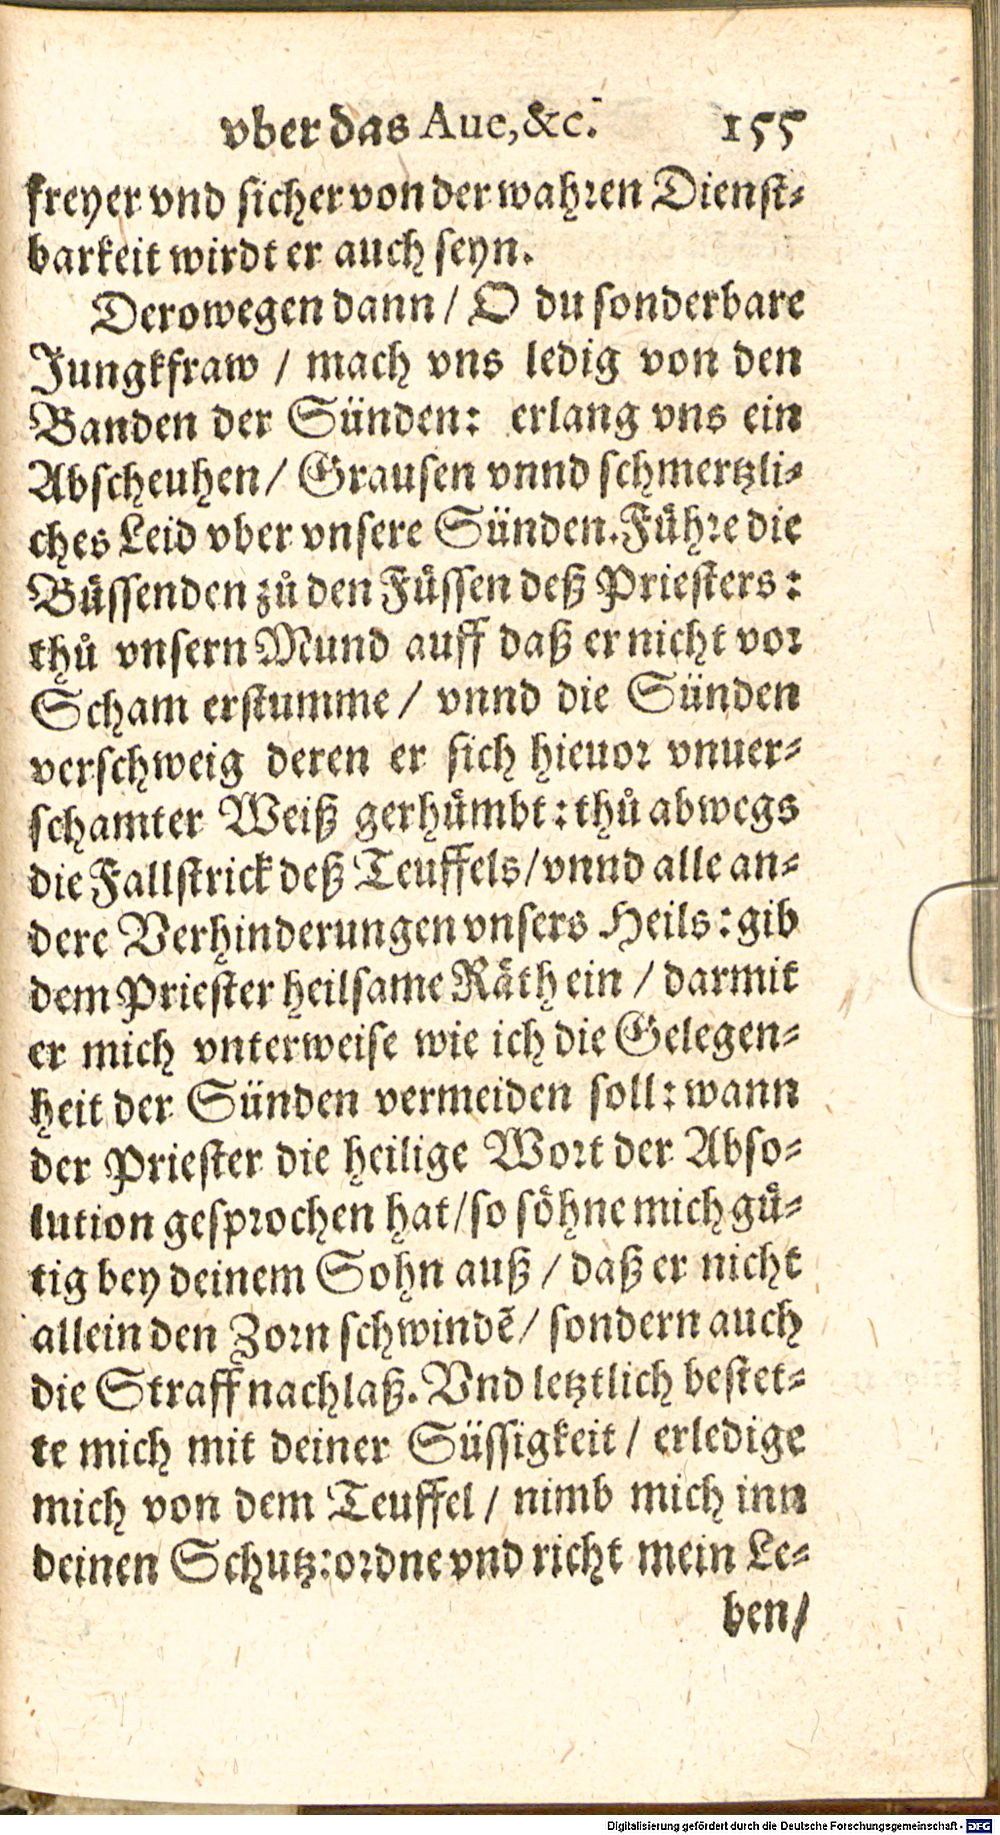 vber das Aue, &c. 155
freyer vnd sicher von der wahren Dienst-
barkeit wirdt er auch seyn.
Derowegen dann / O du sonderbare
Jungkfraw / mach vns ledig von den
Banden der Sünden: erlang vns ein
Abscheuhen / Grausen vnnd schmertzli-
ches Leid vber vnsere Sünden. Führe die
Büssenden zů den Füssen deß Priesters:
thů vnsern Mund auff daß er nicht vor
Scham erstumme / vnnd die Sünden
verschweig deren er sich hieuor vnuer-
schamter Weiß gerhümbt: thů abwegs
die Fallstrick deß Teuffels / vnnd alle an-
dere Verhinderungen vnsers Heils: gib
dem Priester heilsame Räth ein / darmit
er mich vnterweise wie ich die Gelegen-
heit der Sünden vermeiden soll: wann
der Priester die heilige Wort der Abso-
lution gesprochen hat / so söhne mich gü-
tig bey deinem Sohn auß / daß er nicht
allein den Zorn schwindẽ / sondern auch
die Straff nachlaß. Vnd letztlich bestet-
te mich mit deiner Süssigkeit / erledige
mich von dem Teuffel / nimb mich inn
deinen Schutz: ordne vnd richt mein Le-
ben /
Digitalisierung gefördert durch die Deutsche Forschungsgemeinschaft - DFG